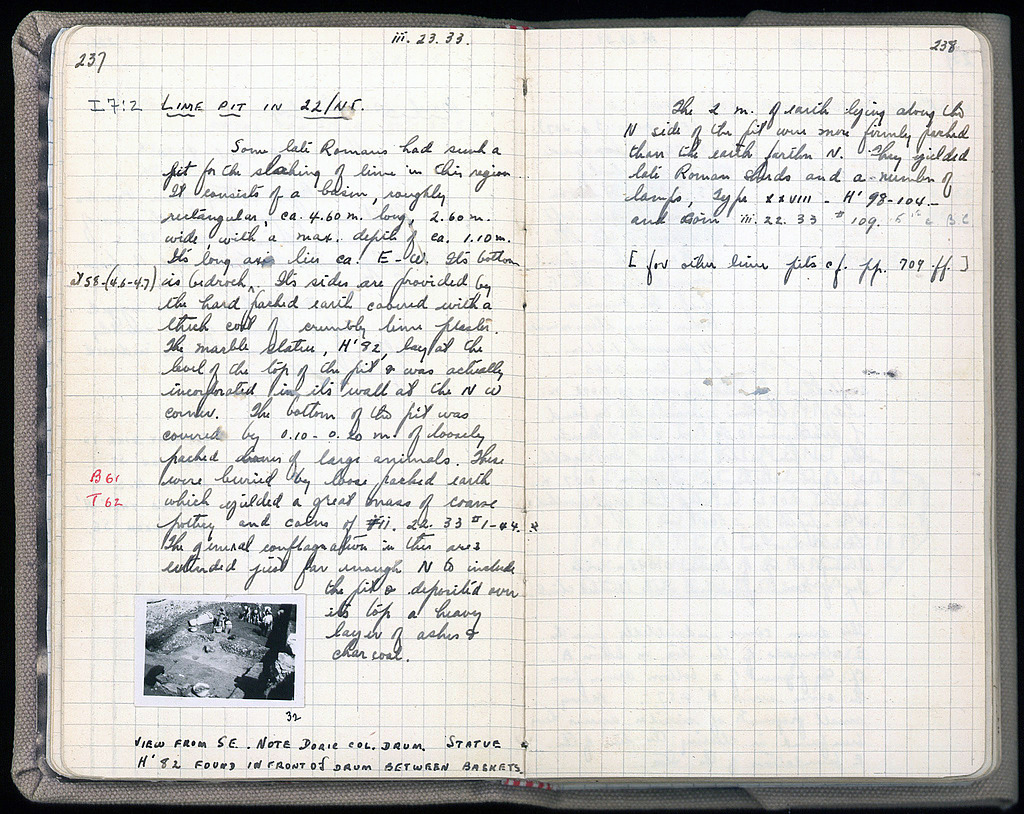 237
iii. 23. 33.
I 7:2 LIME PIT IN 22/ΝΣΤ.
Some late Romans had sunk a
pit for the slaking of lime in this region
It consists of a basin, roughly
rectangular, ca. 4.60 m. long, 2.60 m.
wide, with a max. depth of ca. 1.10 m.
Its long axis lies ca. E-W. Its bottom
at 58-(4.6-4.7) is bedrock. Its sides are provided by
the hard packed earth covered with a
thick coat of crumbly lime plaster.
The marble statue, H'82, lay at the
level of the top of the pit & was actually
incorporated in its wall at the N W
corner. The bottom of the pit was
covered by 0.10-0.20 m. of loosely
packed bones of large animals. These
B 61
were buried by loose packed earth
T 62
which yielded a great mass of coarse
pottery and coins of iii. 22. 33 #1-44. *
The general conflagration in this area
extended just far enough N to include
the pit & deposited over
its top a heavy
layer of ashes &
charcoal.
32
VIEW FROM SE. NOTE DORIC COL. DRUM. STATUE
H'82 FOUND IN FRONT OF DRUM BETWEEN BASKETS.
238
The 2 m. of earth lying along the
N side of the pit were more firmly packed
than the earth farther N. They yielded
late Roman sherds and a number of
lamps, Type XXVIII - H' 98-104 -
and coin iii. 22. 33 #109. c BC
[for other lime pits cf. pp. 709 ff.]